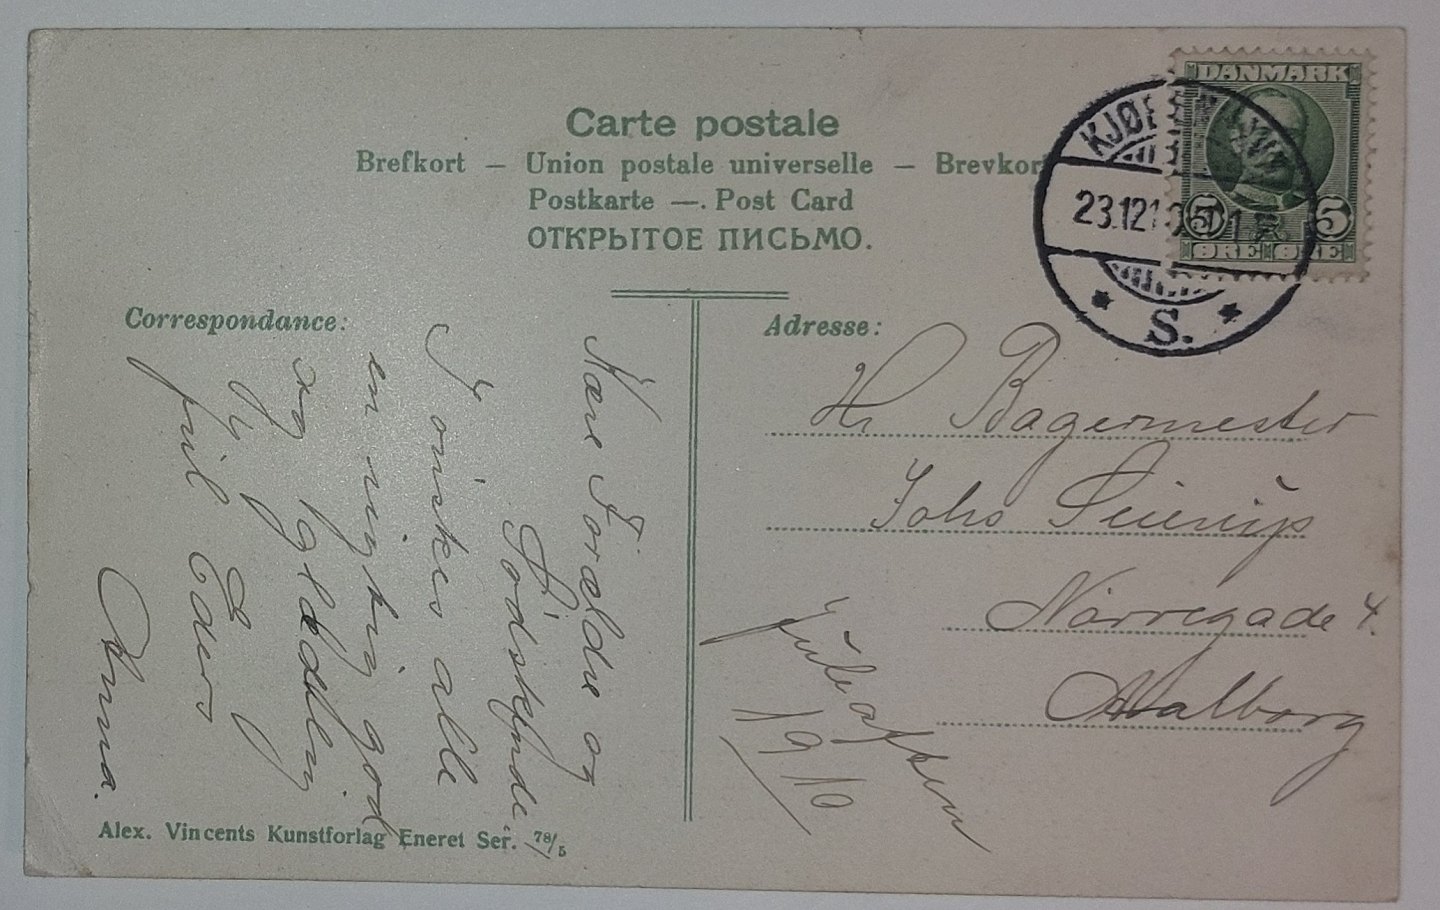 Carte postale
Brefkort — Union postale universelle — Brevkort
Postkarte — Post Card
ОТКРЫТОЕ ПИСЬМО.
DANMARK
5 5
ØRE ØRE
KJØBENHAVN
23.12.10
S.
Correspondance:
Kære Forældre og
Södskende
I önskes alle
en rigtig god
og glædelig
Jul
Eders
Anna.
Adresse:
Hr Bagermester
Johs
Nörregade 4.
Aalborg
Juleaften
1910
Alex. Vincents Kunstforlag Eneret Ser. 78/5